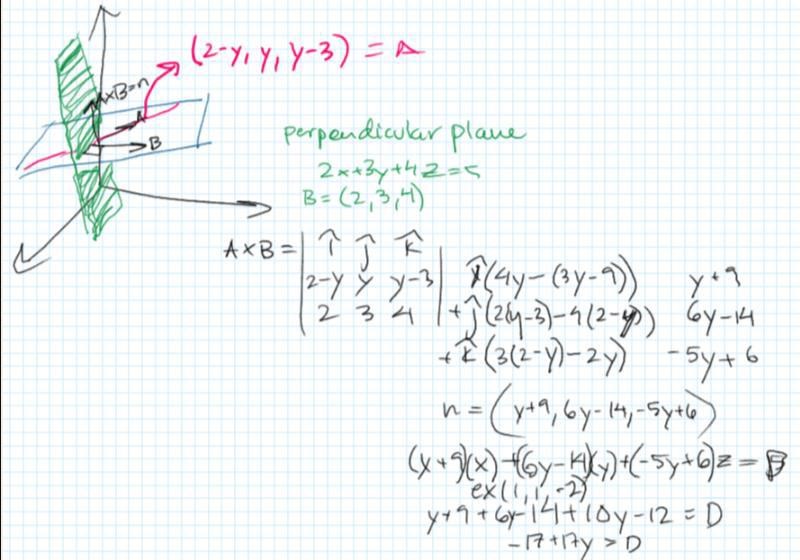 (2-y, y, y-3) = A
A×B=n
A
B
perpendicular plane
2x+3y+4z=5
B=(2,3,4)
A×B = | î ĵ k̂ |
| 2-y y y-3 |
| 2 3 4 |
î(4y-(3y-9)) y+9
+ĵ(2(y-3)-4(2-y)) 6y-14
+k̂(3(2-y)-2y) -5y+6
n = (y+9, 6y-14, -5y+6)
(y+9)(x)+(6y-14)(y)+(-5y+6)z = D
ex(1,1,-2)
y+9+6y-14+10y-12 = D
-17+17y = D